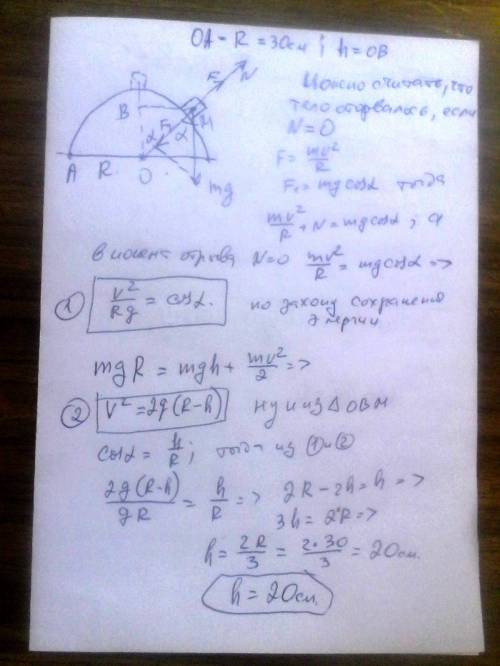 OA = R = 30см; h = OB
Можно считать, что
тело оторвалось, если
N = 0
F = mv²/R
F₁ = mg cosα тогда
mv²/R + N = mg cosα, а
в момент отрыва N=0 mv²/R = mg cosα =>
① v²/Rg = cosα. по закону сохранения
энергии
mgR = mgh + mv²/2 =>
② V² = 2g(R-h) ну и из △OBM
cosα = h/R; тогда из ① и ②
2g(R-h)/gR = h/R => 2R - 2h = h =>
3h = 2R =>
h = 2R/3 = 2·30/3 = 20см.
h = 20см.
B
α
α
F₁
F
N
M
A
R
O
mg